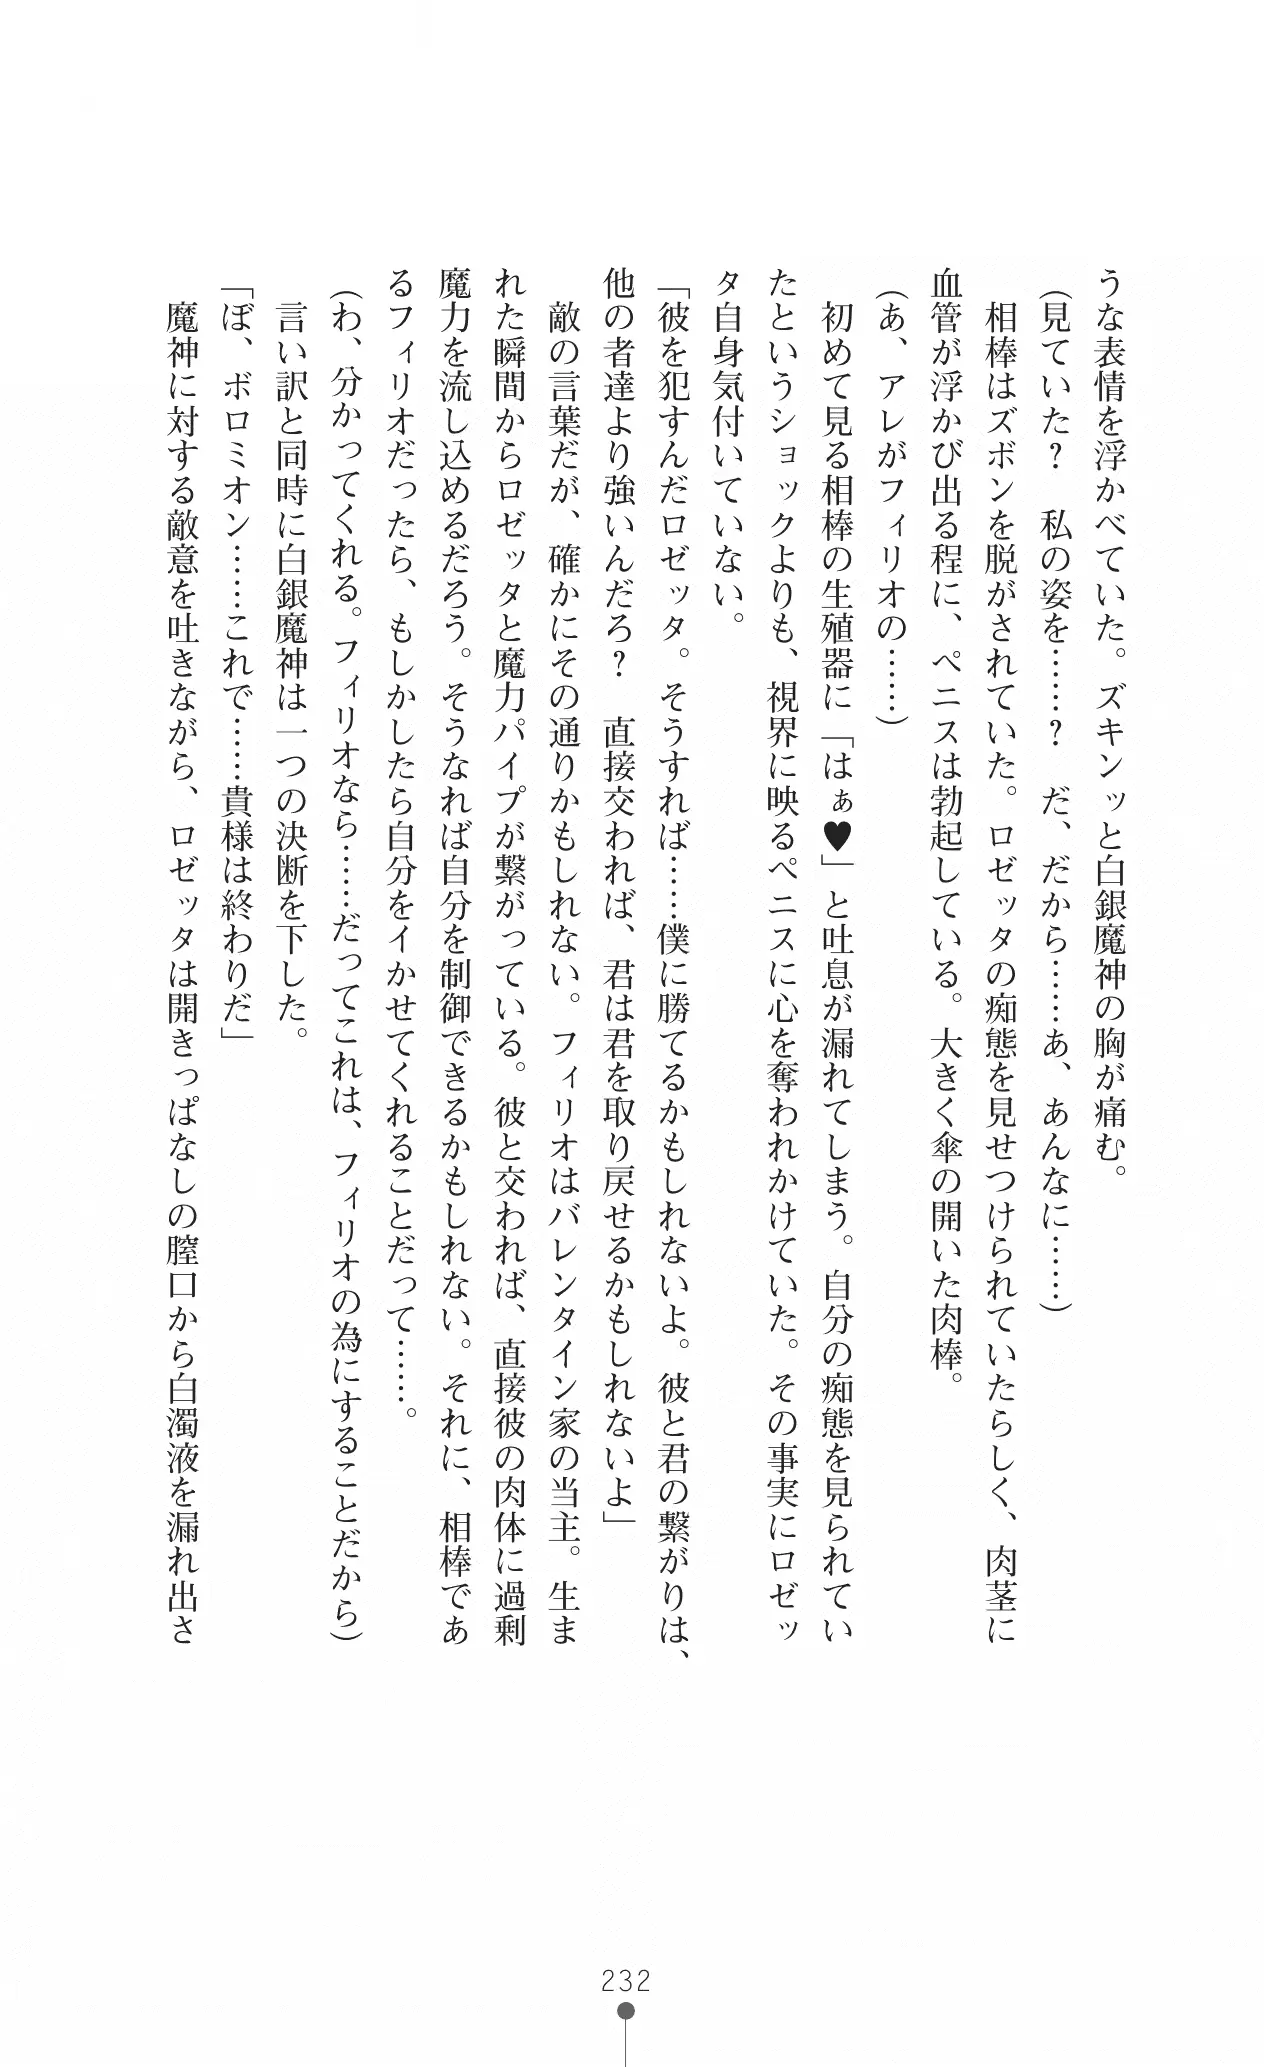 うな表情を浮かべていた。ズキンッと白銀魔神の胸が痛む。
（見ていた？　私の姿を……？　だ、だから……あ、あんなに……）
　相棒はズボンを脱がされていた。ロゼッタの痴態を見せつけられていたらしく、肉茎に
血管が浮かび出る程に、ペニスは勃起している。大きく傘の開いた肉棒。
（あ、アレがフィリオの……）
　初めて見る相棒の生殖器に「はぁ♥」と吐息が漏れてしまう。自分の痴態を見られてい
たというショックよりも、視界に映るペニスに心を奪われかけていた。その事実にロゼッ
タ自身気付いていない。
「彼を犯すんだロゼッタ。そうすれば……僕に勝てるかもしれないよ。彼と君の繋がりは、
他の者達より強いんだろ？　直接交われば、君は君を取り戻せるかもしれないよ」
　敵の言葉だが、確かにその通りかもしれない。フィリオはバレンタイン家の当主。生ま
れた瞬間からロゼッタと魔力パイプが繋がっている。彼と交われば、直接彼の肉体に過剰
魔力を流し込めるだろう。そうなれば自分を制御できるかもしれない。それに、相棒であ
るフィリオだったら、もしかしたら自分をイかせてくれることだって……。
（わ、分かってくれる。フィリオなら……だってこれは、フィリオの為にすることだから）
　言い訳と同時に白銀魔神は一つの決断を下した。
「ぼ、ボロミオン……これで……貴様は終わりだ」
　魔神に対する敵意を吐きながら、ロゼッタは開きっぱなしの膣口から白濁液を漏れ出さ
232